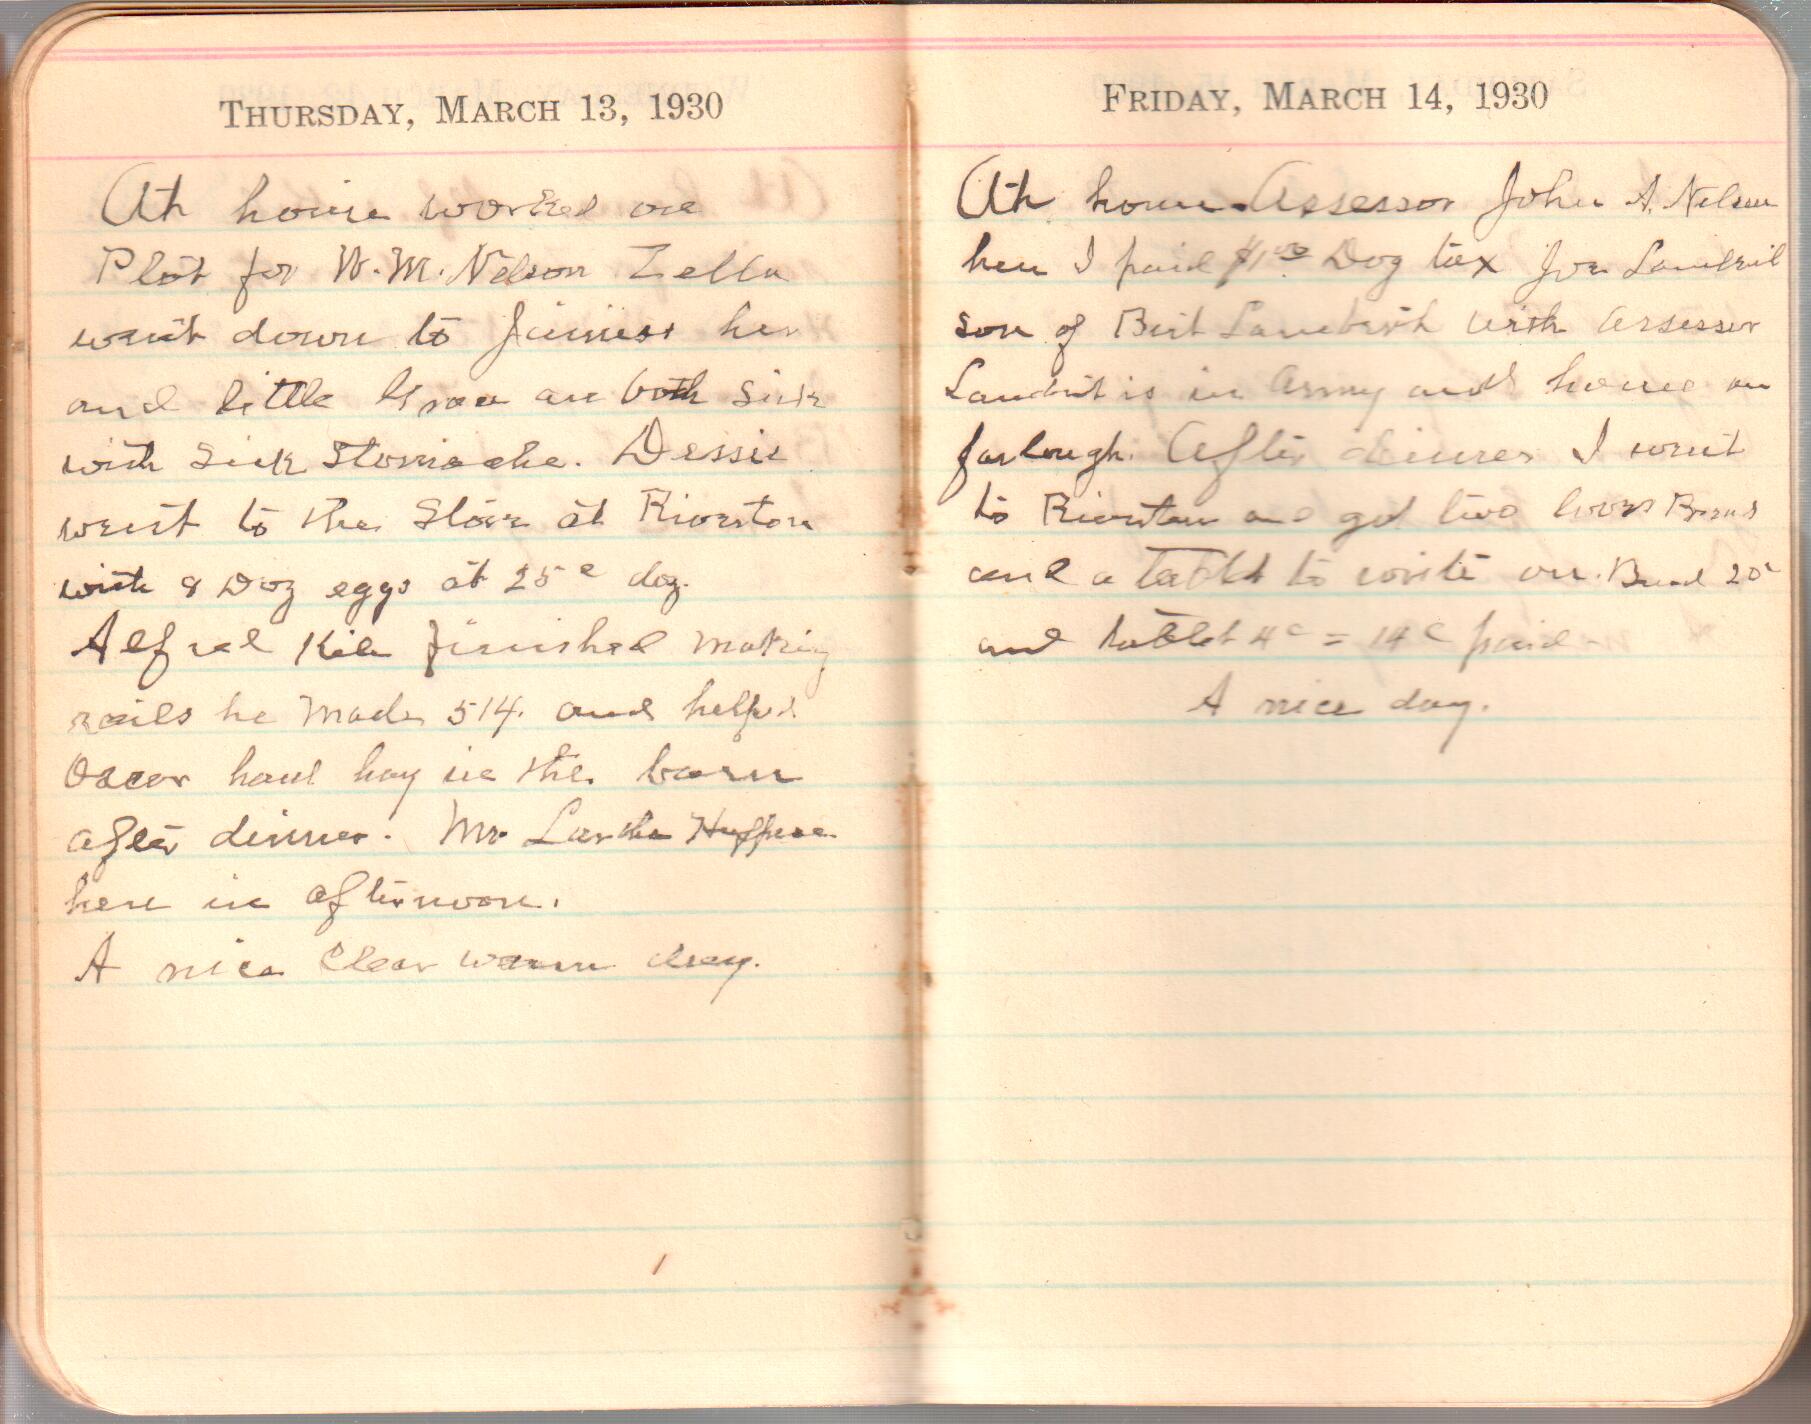 THURSDAY, MARCH 13, 1930
At home worked on
Plot for W. M. Nelson Zella
went down to her
and little are both sick
with sick Stomache. Dessie
went to the Store at Riverton
with 8 Doz eggs at 25c doz.
Alfred Kile finished making
rails he made 514. and helped
Oscar haul hay in the barn
after dinner. Mr.
here in afternoon.
A nice clear warm day.
FRIDAY, MARCH 14, 1930
At home. Assessor John A. Nelson
here I paid $1.00 Dog tax Joe
son of with Assessor
is in Army and home on
furlough. After dinner I went
to Riverton and got two
and a tablet to write on. 20c
and tablet 4c = 14c paid
A nice day.